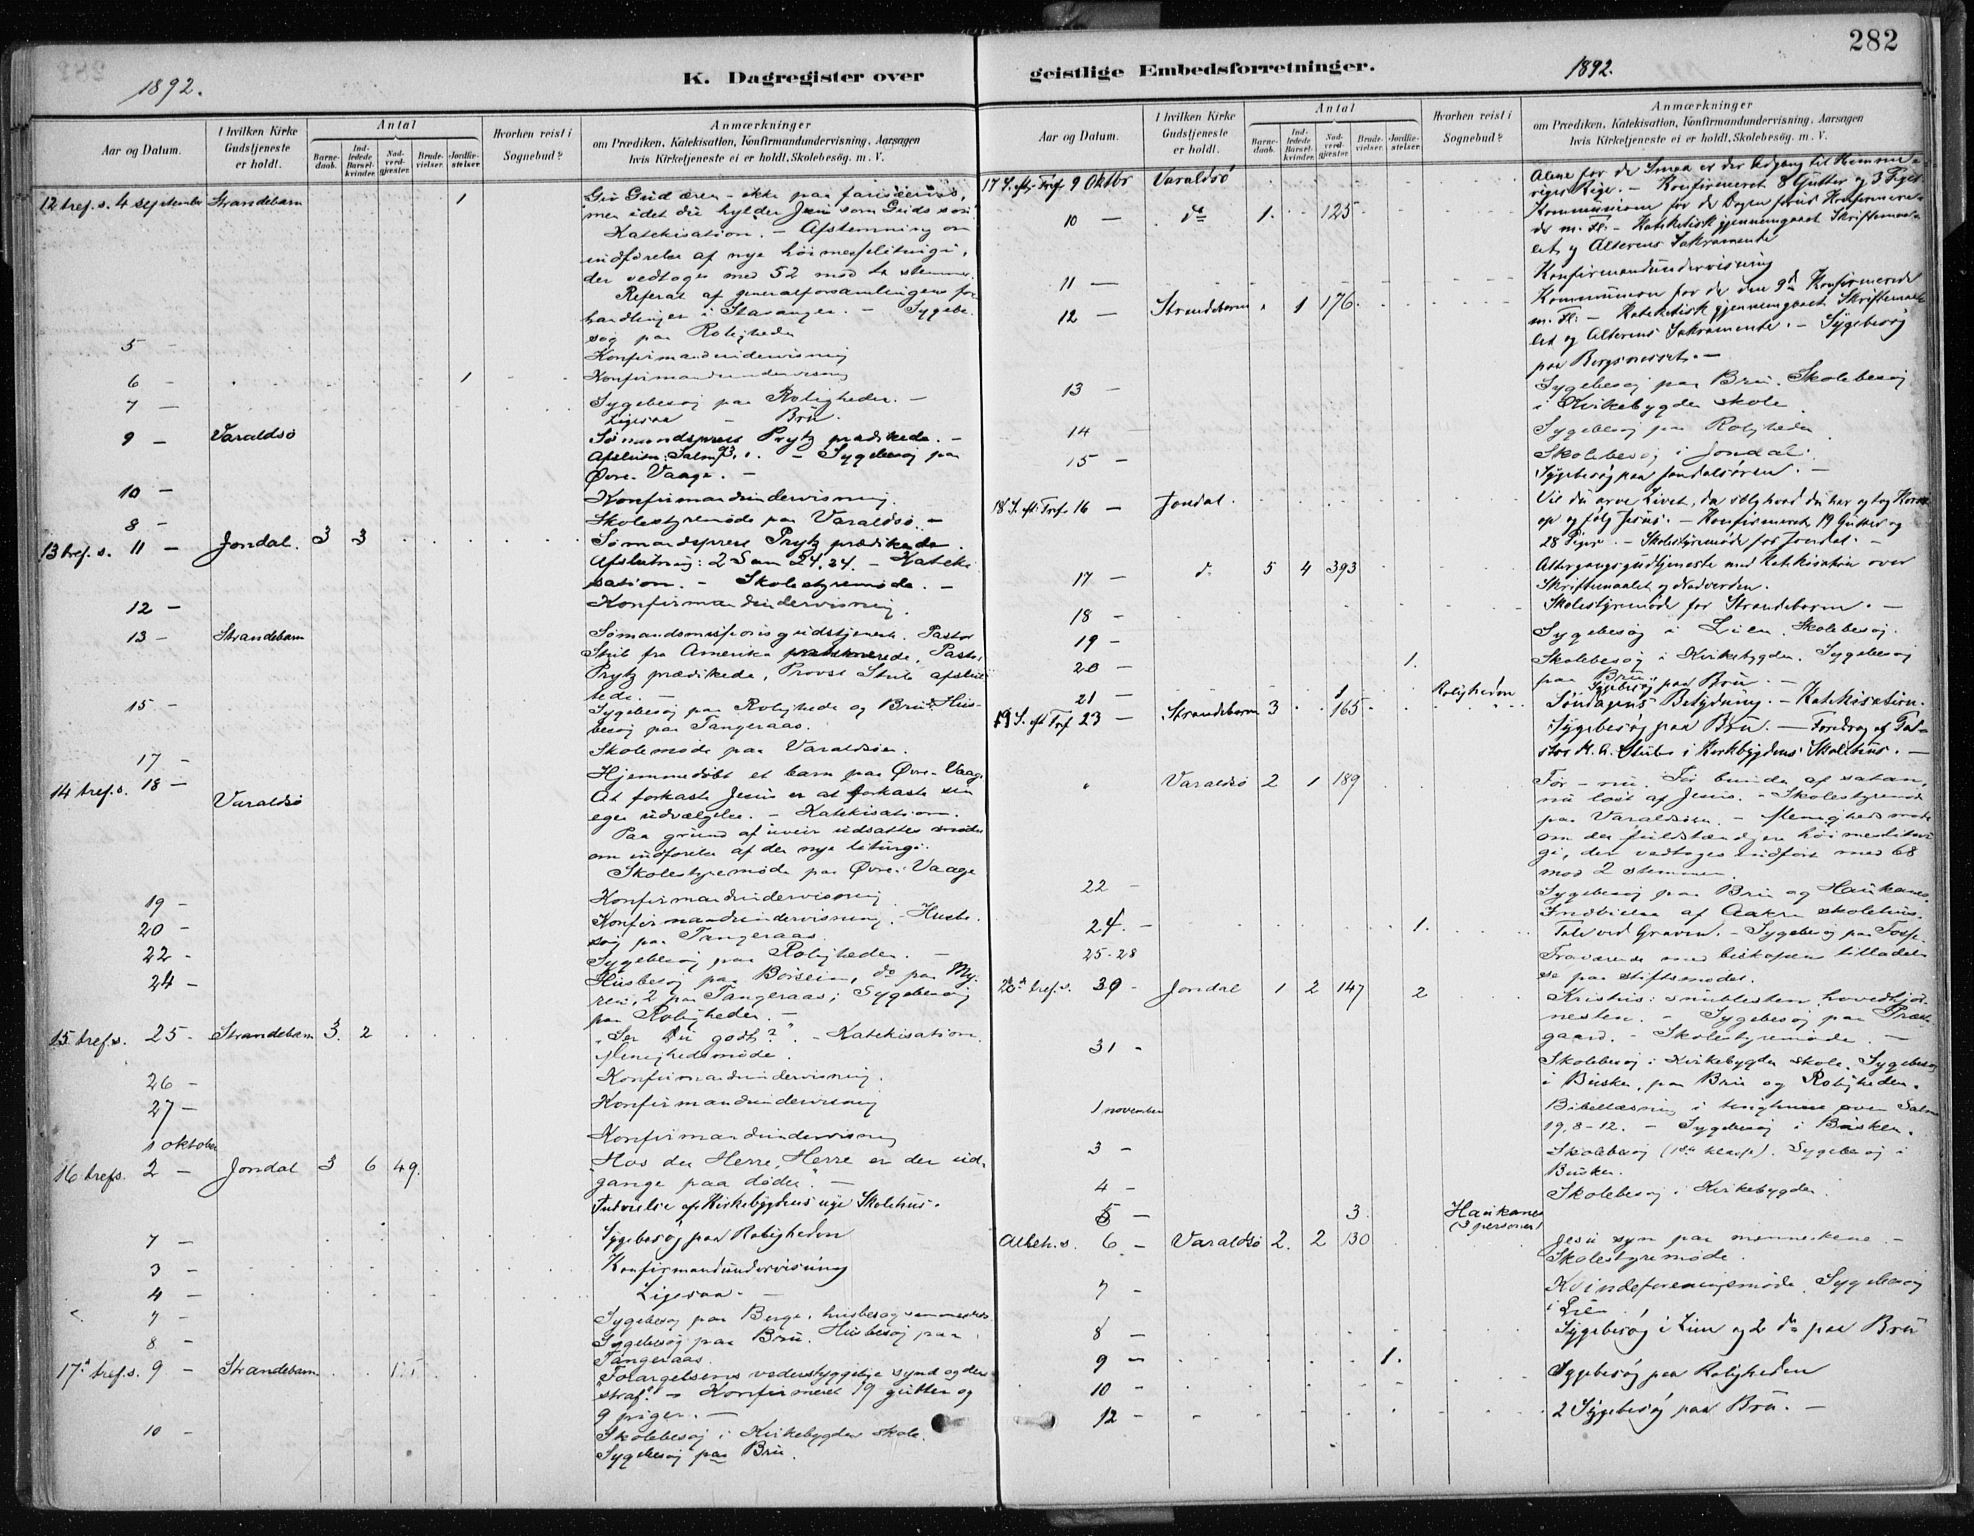 282
1892.
K. Dagregister over
geistlige Embedsforretninger.
1892.
Aar og Datum.
I hvilken Kirke Gudstjeneste er holdt.
Antal
Barnedaab.
Indledede Barselkvinder.
Nadverdgjester.
Brudevielser.
Jordfæstelser.
Hvorhen reist i Sognebud?
Anmærkninger
om Prædiken, Katekisation, Konfirmandundervisning, Aarsagen
hvis Kirketjeneste ei er holdt, Skolebesög. m. V.
12 tref. s. 4 September Strandebarm 1 Giv Gud æren – ikke paa farisæervis,
men idet du hylder Jesu som Guds søn
Katekisation. – Afstemning om
indførelse af nye høimesseliturgi,
der vedtoges med 52 mod stemmer.
Referat af generalforsamlingens for-
handlinger i Stavanger. – Sygebe-
søg paa Roligheden
5 – Konfirmandundervisning
6 – 1 Konfirmandundervisning
7 – Sygebesøg paa Roligheden. –
Ligesaa – Brü.
9 – Varaldsö Sømandsprest Prytz prædikede. –
Afslutn: Salm 93, 1. – Sygebesøg paa
Øvre-Vaage. –
10 – Konfirmandundervisning.
8 – Skolestyremøde paa Varaldsø. –
13 tref. s. 11 – Jondal. 3 3 Sømandsprest Prytz prædikede
Afslutning: 2 Sam 24.24. – Kateki
sation. – Skolestyremøde. –
12 – Konfirmandundervisning.
13 – Strandebarm Sømandsmissionsgudstjeneste. Pastor
Stub fra Amerika messede, Pastor
Prytz prædikede, Provst Stub afslut-
tede. –
15 – Sygebesøg paa Roligheden og Brü. Hus-
besøg paa Tangeraas.
17 – Skolemøde paa Varaldsøen.
14 tref. s. 18 – Varaldsö Hjemmedøbt et barn paa Øvre-Vaage
At forkaste Jesus er at forkaste sin
egen udvælgelse. – Katekisation.
Paa grund af uveir udsattes møde
om indførelse af den nye liturgi.
Skolestyremøde paa Øvre-Vaage
19 – Konfirmandundervisning
20 – Konfirmandundervisning. Husbe-
søg paa Tangeraas.
22 – Sygebesøg paa Roligheden. –
24 – Husbesøg paa Børsein, do paa My-
ren, 2 paa Tangeraas; Sygebesøg
paa Roligheden. –
15 tref. s. 25 – Strandebarm 3. 2 „Ser du godt?“ – Katekisation
Menighedsmøde.
26 – Konfirmandundervisning.
27 – Konfirmandundervisning
1 oktober Konfirmandundervisning
16 tref s. 2 – Jondal 3 6 49. „Hos den Herre, Herre er der ud-
gange paa døden. –
Indvielse af Kirkebygdens nye Skolehus.
7 – Sygebesøg paa Roligheden
3 – Konfirmandundervisning
4 – Ligesaa. –
7 – Sygebesøg paa Berge, husbesøg sammesteds
8 – Sygebesøg paa Brü. Husbesøg paa
Tangeraas.
17de tref. s. 9 – Strandebarm Forargelsens vederstyggelige synd og dens
straf. – Konfirmeret 19 gutter og
9 piger. –
10 – Skolebesøg i Kirkebygdens skole.
Sygebesøg paa Brü.
Aar og Datum.
I hvilken Kirke Gudstjeneste er holdt.
Antal
Barnedaab.
Indledede Barselkvinder.
Nadverdgjester.
Brudevielser.
Jordfæstelser.
Hvorhen reist i Sognebud?
Anmærkninger
om Prædiken, Katekisation, Konfirmandundervisning, Aarsagen
hvis Kirketjeneste ei er holdt, Skolebesög. m. V.
17 S. eft. Tref. 9 Oktbr Varaldsö Alene for de Smaa er der Adgang til Himme-
riges Rige. – Konfirmeret 8 Gutter og 3 Piger
10 – do 1. 125 Kommunion for de Dagen forud Konfirmere-
de m. Fl. – Katekitisk gjennemgaaet Skriftemaa-
let og Alterens Sakramente
11 – Konfirmandundervisning
12 – Strandebarm 1 176 Kommunion for de den 9de Konfirmerede
m. Fl. – Katekitisk gjennemgaaet Skriftemaa-
let og Alterens Sakramente. – Sygebesög
paa Bergsnesset. –
13 – Sygebesøg paa Brü. Skolebesøg
i Kirkebygdens skole
14 – Sygebesøg paa Roligheden
15 – Skolebesøg i Jondal.
Sygebesög paa Jondalsören. –
18 S. eft. Tref. 16 – Jondal. Vil du arve Livet, da sælg hvad du har og tag Korset
op og følg Jesus. – Konfirmeret 19 Gutter og
28 Piger. – Skolestyremøde for Jondal. –
17 – do 5 4 393 Altergangsgudstjeneste med Katekisation over
Skriftemaalet og Nadverden.
18 – Skolestyremøde for Strandebarm. –
19 – Sygebesøg i Lien. Skolebesøg.
20 – 1. Skolebesøg i Kirkebygden. Sygebesøg
paa Brü.
21 – 1 Roligheden Sygebesøg paa Brü. –
19 S. eft Tref 23 – Strandebarm 3 165 Söndagens Betydning. – Katekisation.
Sygebesøg paa Brü. – Foredrag af Pa-
stor H. A. Stub i Kirkebygdens Skolehus. –
„ Varaldsö 2 1 189 Før – nu. Før bunden af satan,
nu løst af Jesus. – Skolestyremøde
paa Varaldsøen. – Menighedsmøde
om den fuldstændigere høimesselitur
gi, der vedtoges indført med 68
mod 2 stemmer.
22 – Sygebesøg paa Brü og Haukanes.
Indvielse af Aakre skolehus.
24. – 1. Tale ved Graven. – Sygebesøg paa
25-28 Fraværende med biskopens tilladel-
se paa stiftsmødet.
20de tref. s. 30 – Jondal 1 2 147 2 Kristus: snublesten, hovedhjør-
nesten. – Sygebesøg paa Præste-
gaard. – Skolestyremøde. –
31 – Skolebesøg i Kirkebygdens skole. Sygebesøg
i Busken, paa Brü og Roligheden.
1 november Bibellæsning i over Salme
19, 8-12. – Sygebesøg i Busken.
3 – Skolebesøg (1ste klasse). Sygebesøg i
Busken.
4 – Skolebesøg i Kirkebygden.
5 – 3. Haukanes
(3 personer)
Alleh. s. 6 – Varaldsö 2. 2 130 Jesu syn paa menneskene –
Skolestyremøde.
7 – Kvindeforeningsmøde. Sygebesøg
i Lien.
8 – Sygebesøg i Lien og 2 do paa Brü
9 – 1. Sygebesøg paa Roligheden
10 –
12 – 2 Sygebesøg paa Brü. –